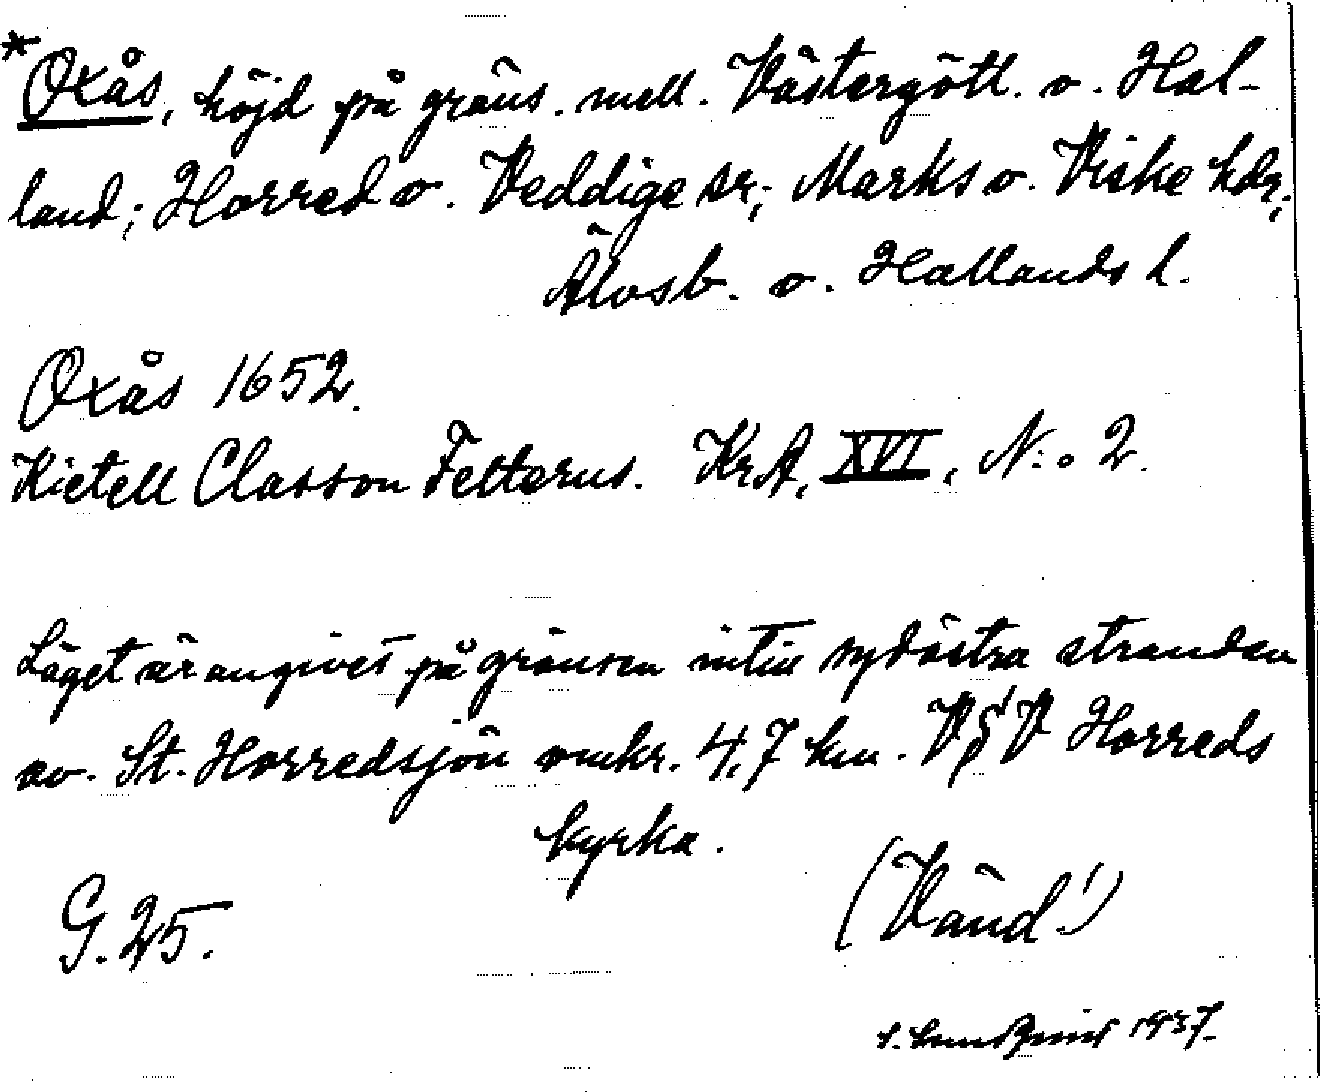 *Oxås, höjd på gräns. mell. Västergötl. o. Hal-
land; Horred o. Veddige sr; Marks o. Viske hdr;
Älvsb. o. Hallands l.
Oxås 1652.
Kietell Classon Felterus. KrA, XVI, N:o 2.
Läget är angivet på gränsen intill sydöstra stranden
av St. Horredsjön omkr. 4,7 km. V§V Horreds
kyrka.
G. 25.
(Vänd!)
1937.